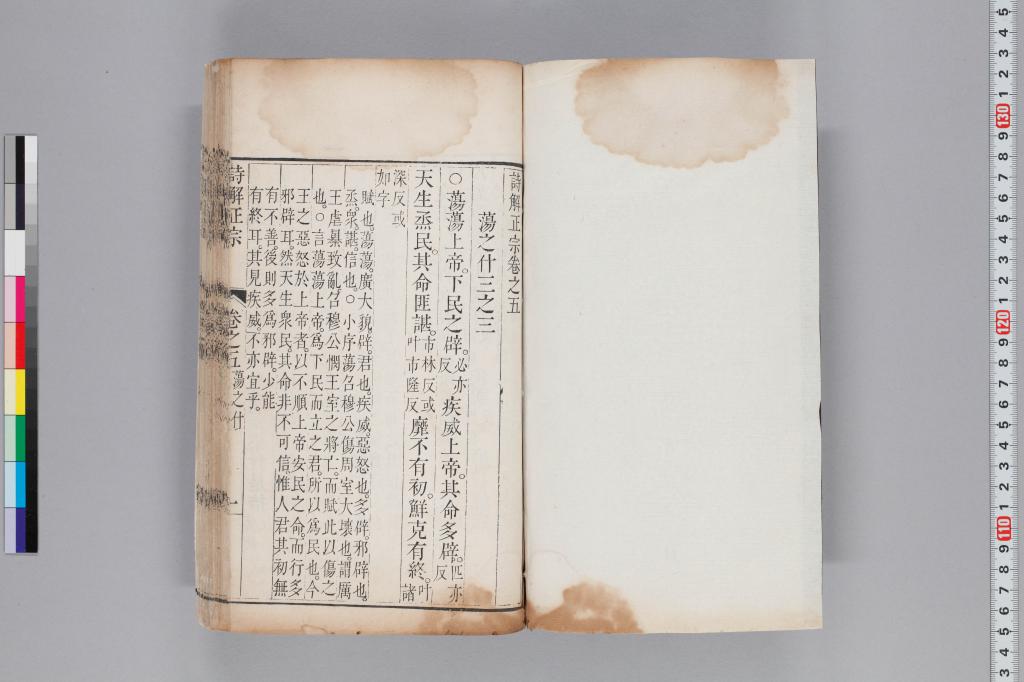 詩解正宗卷之五
蕩之什三之三
○蕩蕩上帝。下民之辟。必亦反疾威上帝。其命多辟。匹亦反
天生烝民。其命匪諶。市林反或叶市隆反靡不有初。鮮克有終。叶諸
深反或如字
賦也。蕩蕩。廣大貌。辟。君也。疾威。惡怒也。多辟。邪辟也。
烝。衆。諶。信也。○小序蕩召穆公傷周室大壞也。謂厲
王虐暴致亂。召穆公憫王室之將亡。而賦此以傷之
也。○言蕩蕩上帝。爲下民而立之君。所以爲民也。今
王之惡怒於上帝者。以不順上帝安民之命。而行多
邪辟耳。然天生衆民。其命非不可信。惟人君其初無
有不善。後則多爲邪辟。少能
有終耳。其見疾威。不亦宜乎。
詩解正宗 卷之五蕩之什 一
5
4
3
2
1
130
9
8
7
6
5
4
3
2
1
120
9
8
7
6
5
4
3
2
1
110
9
8
7
6
5
4
3